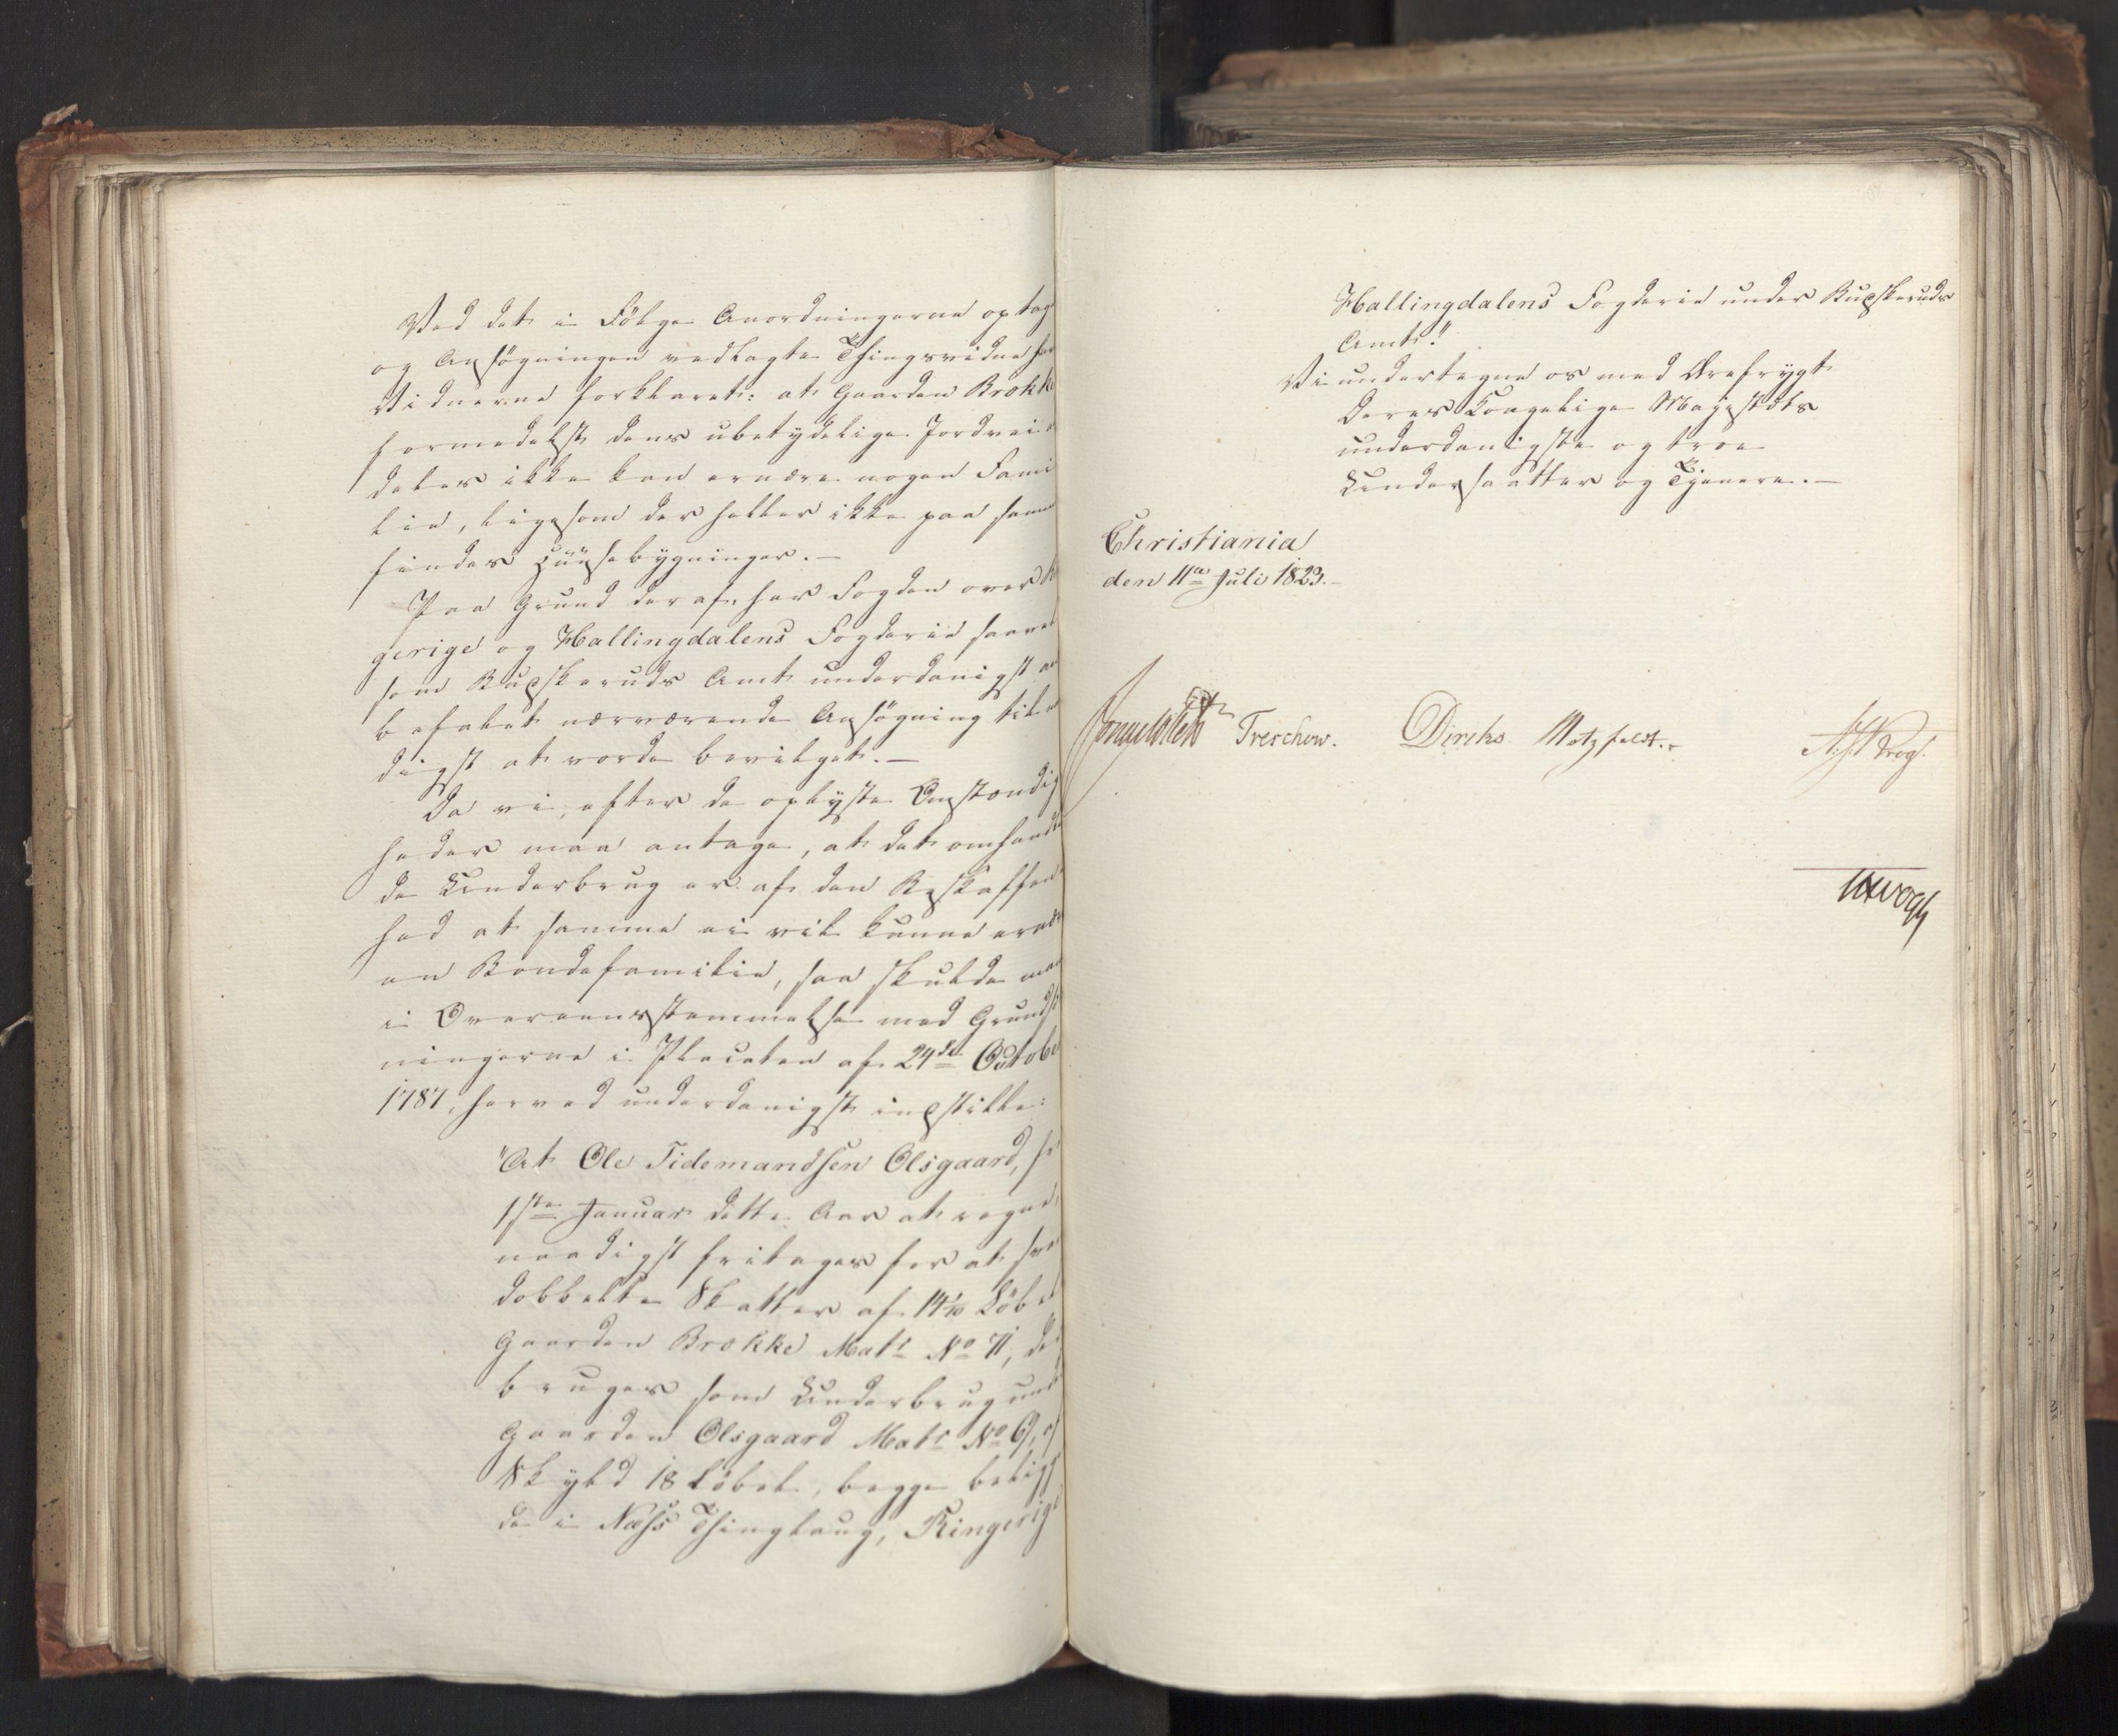 Ved det i Følge Anordningerne optag
og Ansøgningen vedlagte Thingsvidne har
Vidnerne forklaret: at Gaarden Brækk
formedelst dens ubetydelige Jordvei
deles ikke kan ernære nogen Fami
lie, ligesom der heller ikke paa samm
findes Huusebygninger.—
Paa Grund deraf har Fogden over
gerige og Hallingdalens Fogderie saavel
som Buskeruds Amt underdanigst an
befalet nærværende Ansøgning til
digst at vorde bevilget.—
Da vi, efter de oplyste Omstændig
heder maa antage, at det omhand
de Underbrug er af den Beskaffen
hed at samme ei vil kunne ernær
en Bondefamilie, saa skulde man
i Overeensstemmelse med Grunds
ningerne i Placaten af 24de Octobe
1787, herved underdanigst indstille:
"At Ole Tidemandsen Olsgaard, fr
1ste Januar dette Aar at regne,
naadigst fritages for at sva
dobbelte Skatter af 14 1/10 Løb
Gaarden Brække Matr No 71, de
bruges som Underbrug und
Gaarden Olsgaard Matr No 69, af
Skyld 18 Løbet, begge belig
de i Næss Thinglaug, Ringerige
Hallingdalens Fogderie under Buskeruds
Amt."
Vi undertegne os med Ærefrygt
Deres Kongelige Majestæts
underdanigste og troe
Undersaatter og Tjenere.—
Christiania
den 11te Juli 1823.—
Treschow. Diriks Motzfeldt. Krog.
Vogt